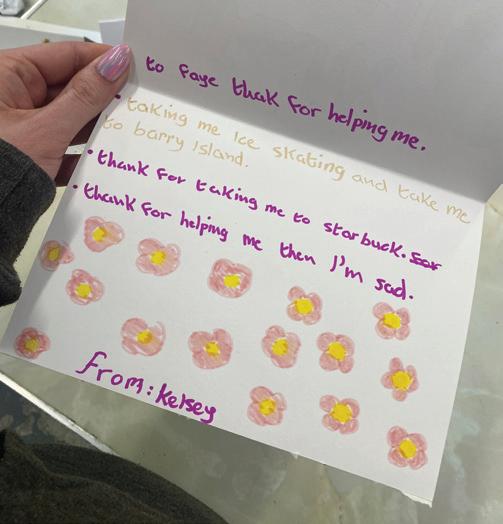 to faye thak for helping me.
• taking me Ice skating and take me
to barry Island.
• thank for taking me to starbuck. For
• thank for helping me then I'm sad.
From: Kelsey